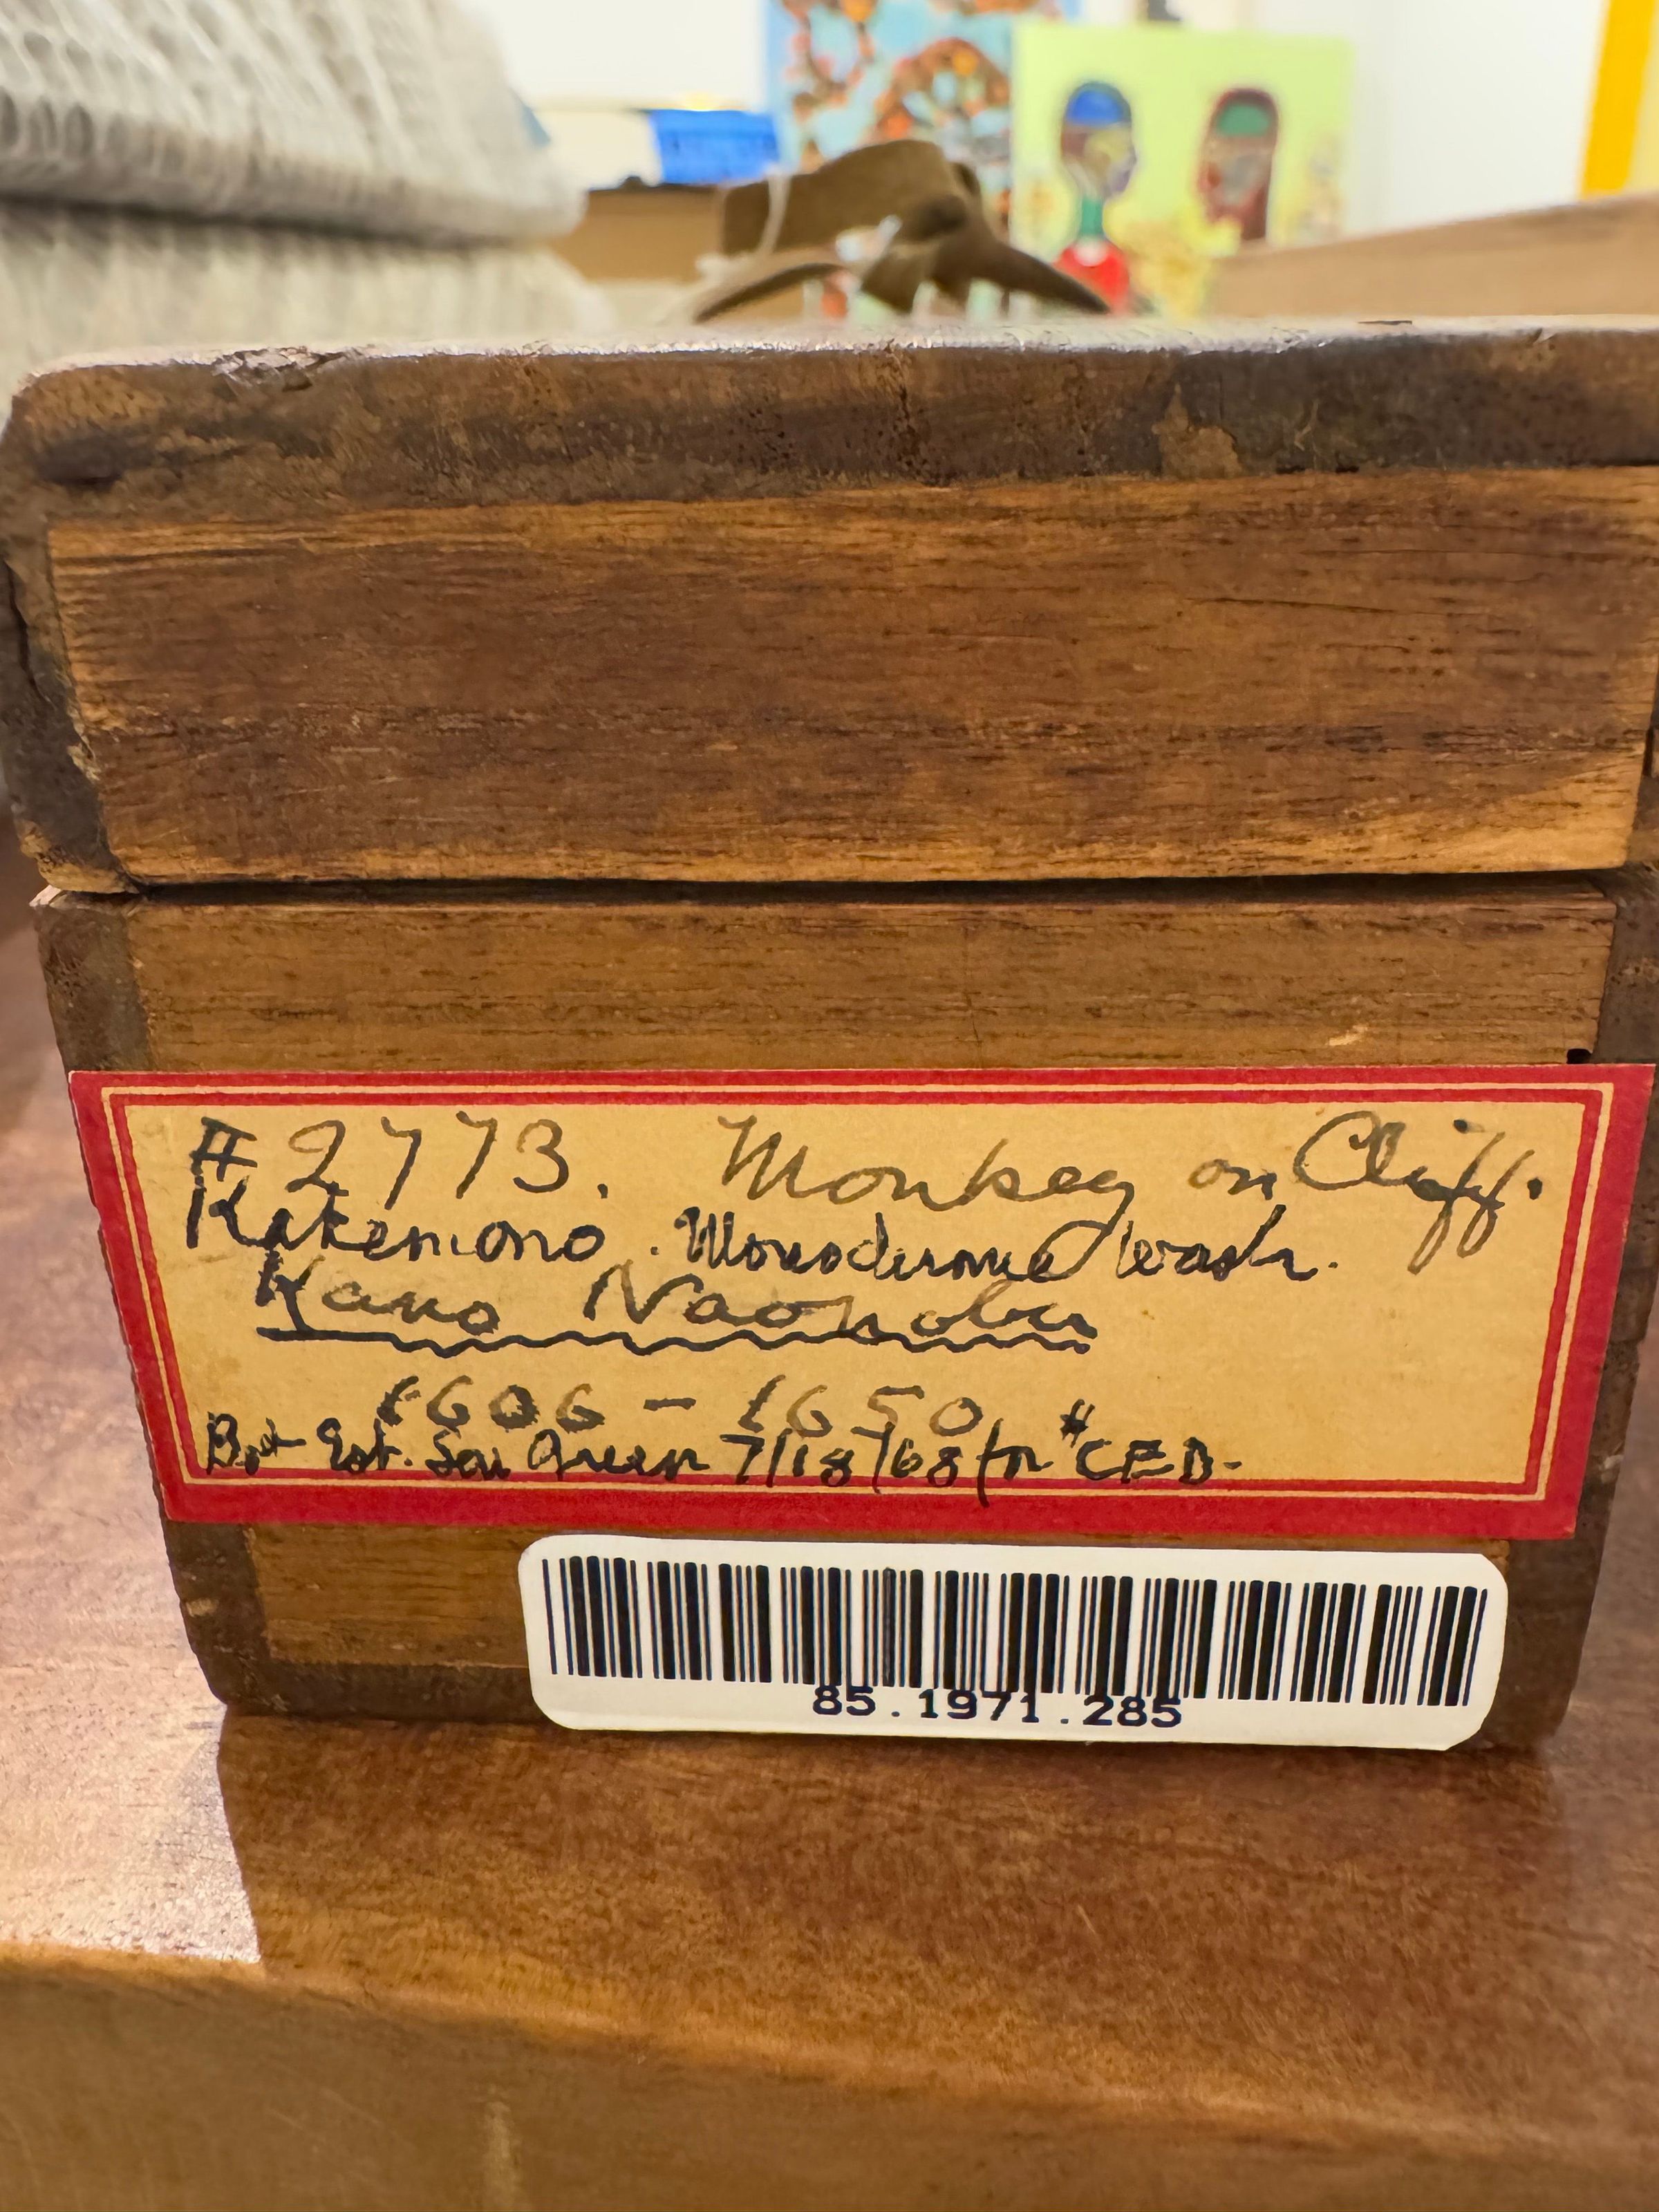 #2773. Monkey on Cliff.
Kakemono. Monochrome Wash.
Kano Naonobu
1606 - 1650
Bot Est. Green 7/18/68 for #CED-
85.1971.285